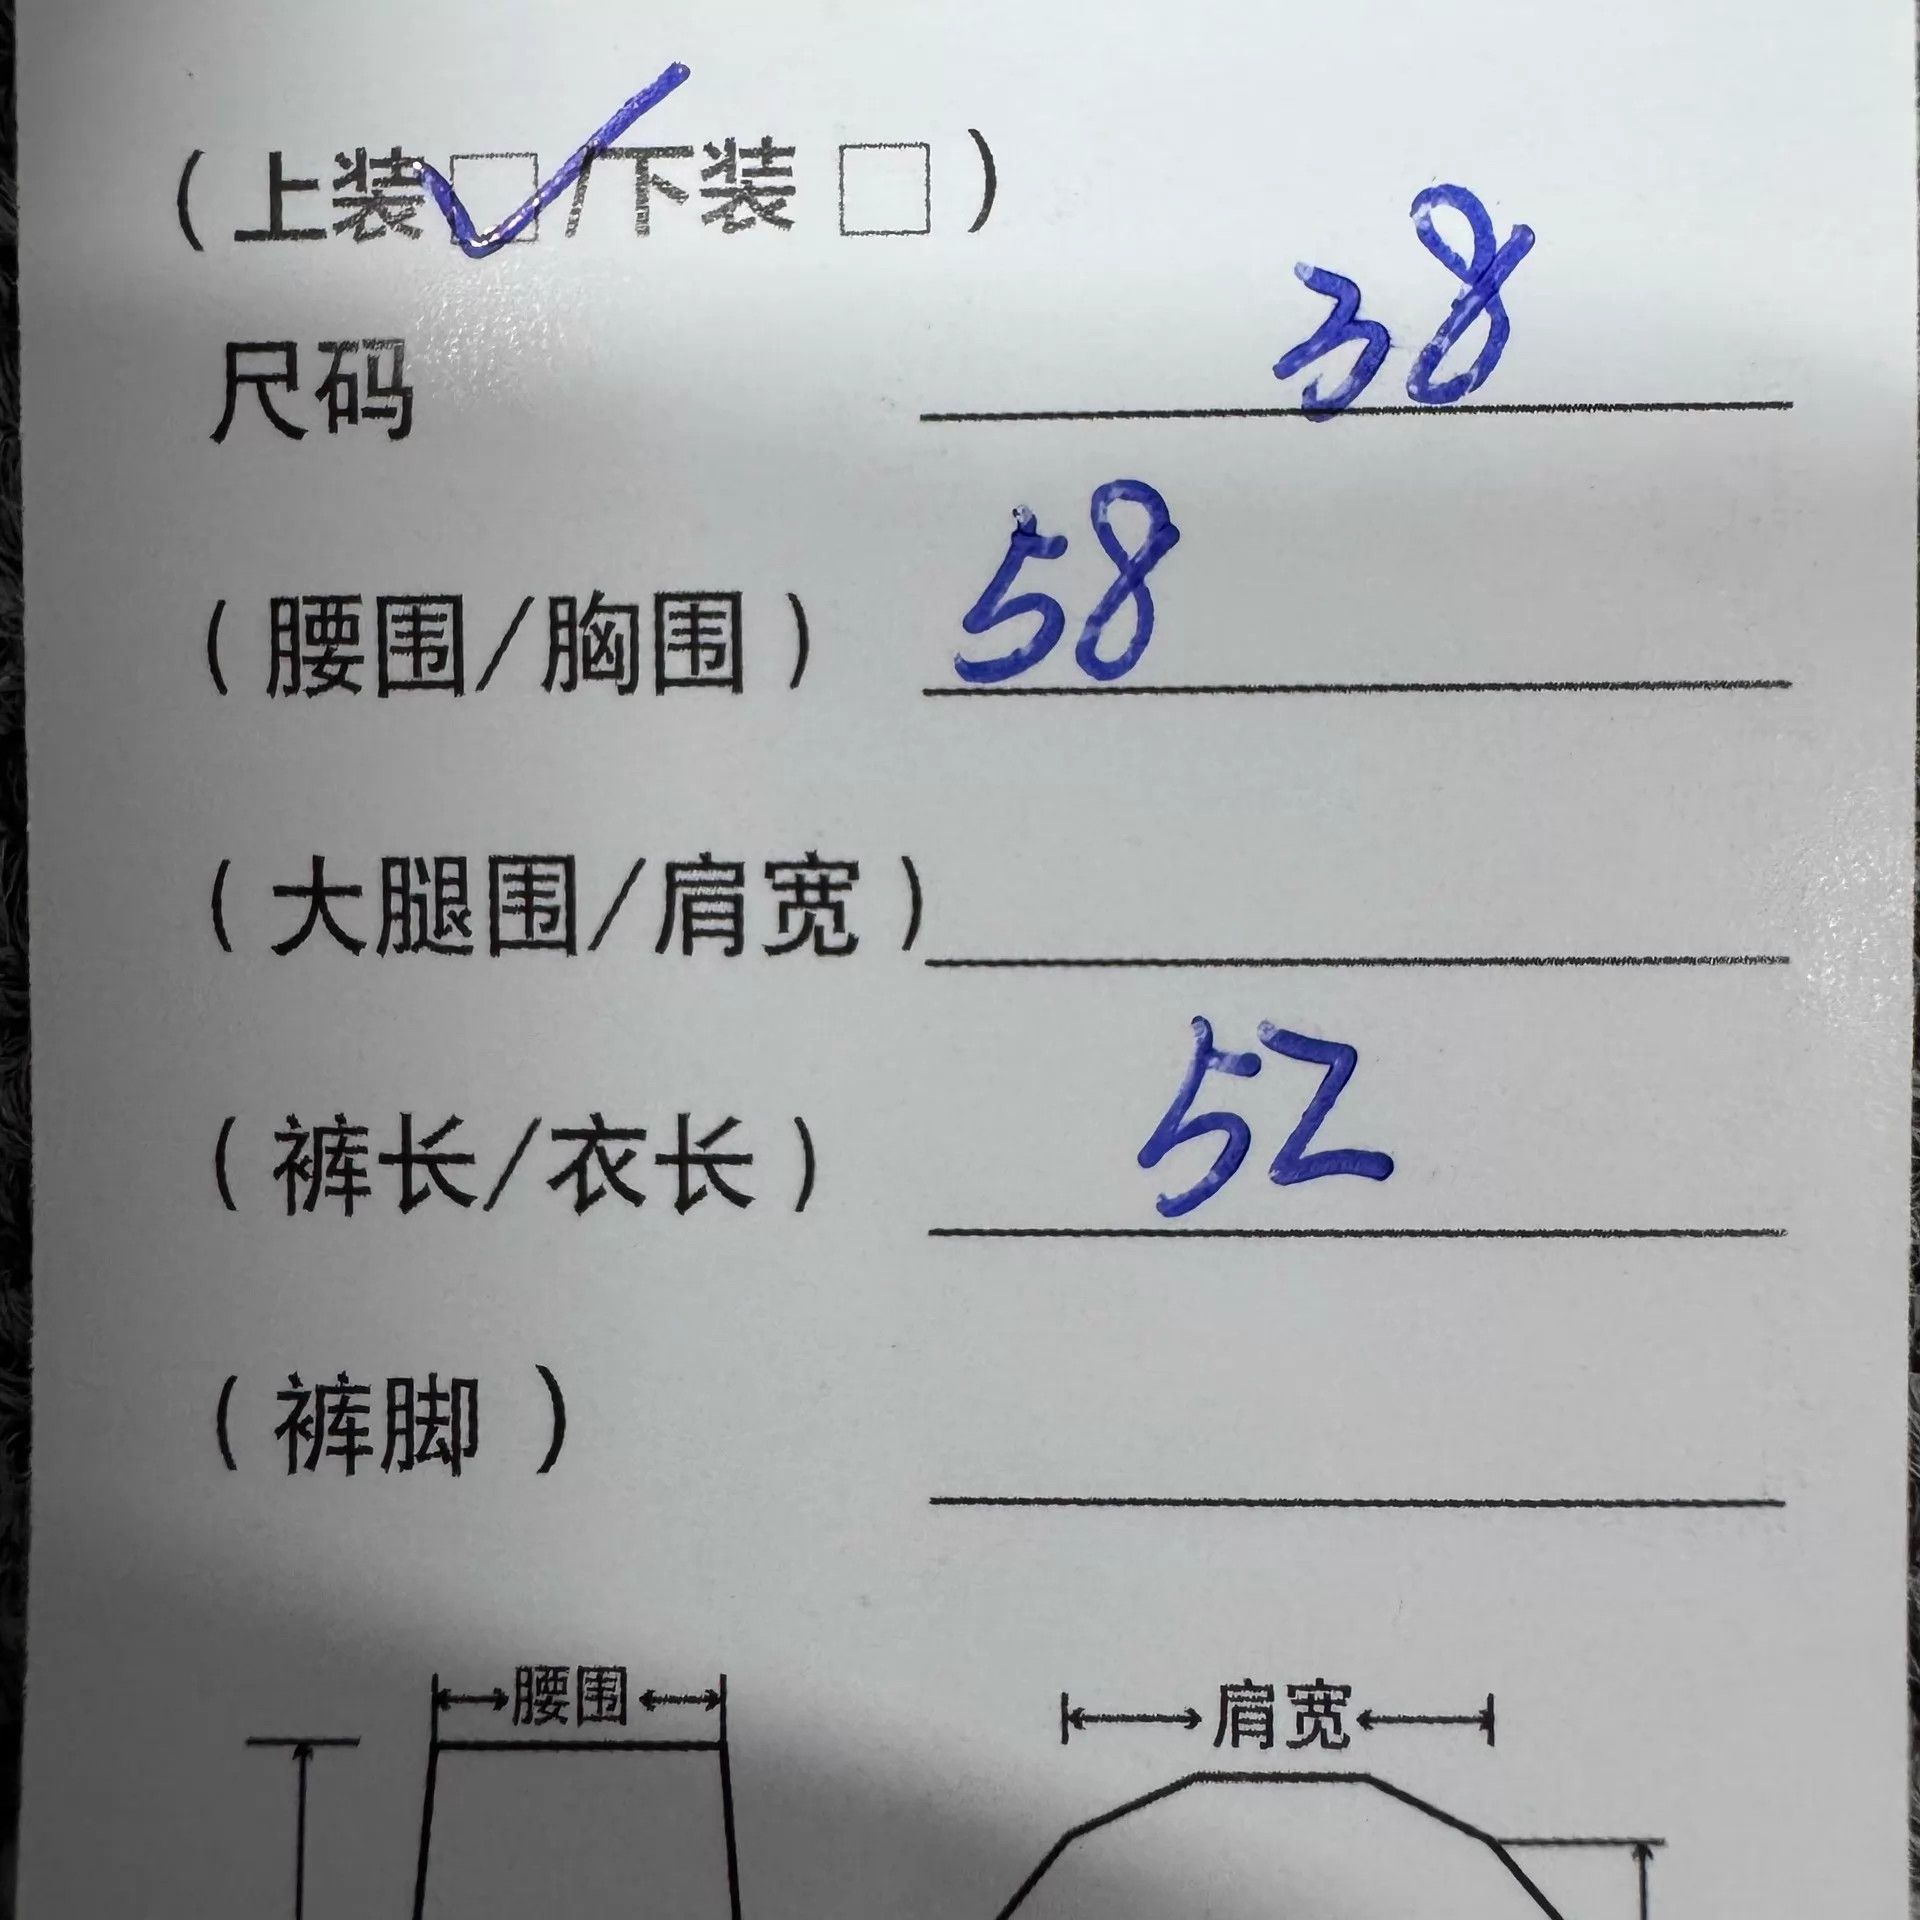 （上装☑/下装□）
尺码 38
（腰围/胸围） 58
（大腿围/肩宽）
（裤长/衣长） 52
（裤脚 ）
腰围 肩宽